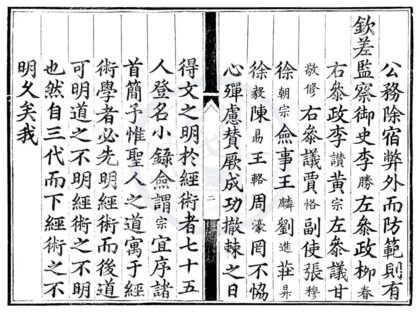 公務除宿弊外而防範則有
欽差監察御史李勝左叅政柳春
右叅政李讚黃宗左叅議甘
敬修右叅議賈恪副使張穆
徐朝宗僉事王麟劉進莊
徐毅陳王輅周濠罔不恊
心殫慮賛厥成功撤棘之日
二
得文之明於經術者七十五
人登名小錄僉謂宗宜序諸
首簡予惟聖人之道寓于經
術學者必先明經術而後道
可明道之不明經術之不明
也然自三代而下經術之不
明久矣我